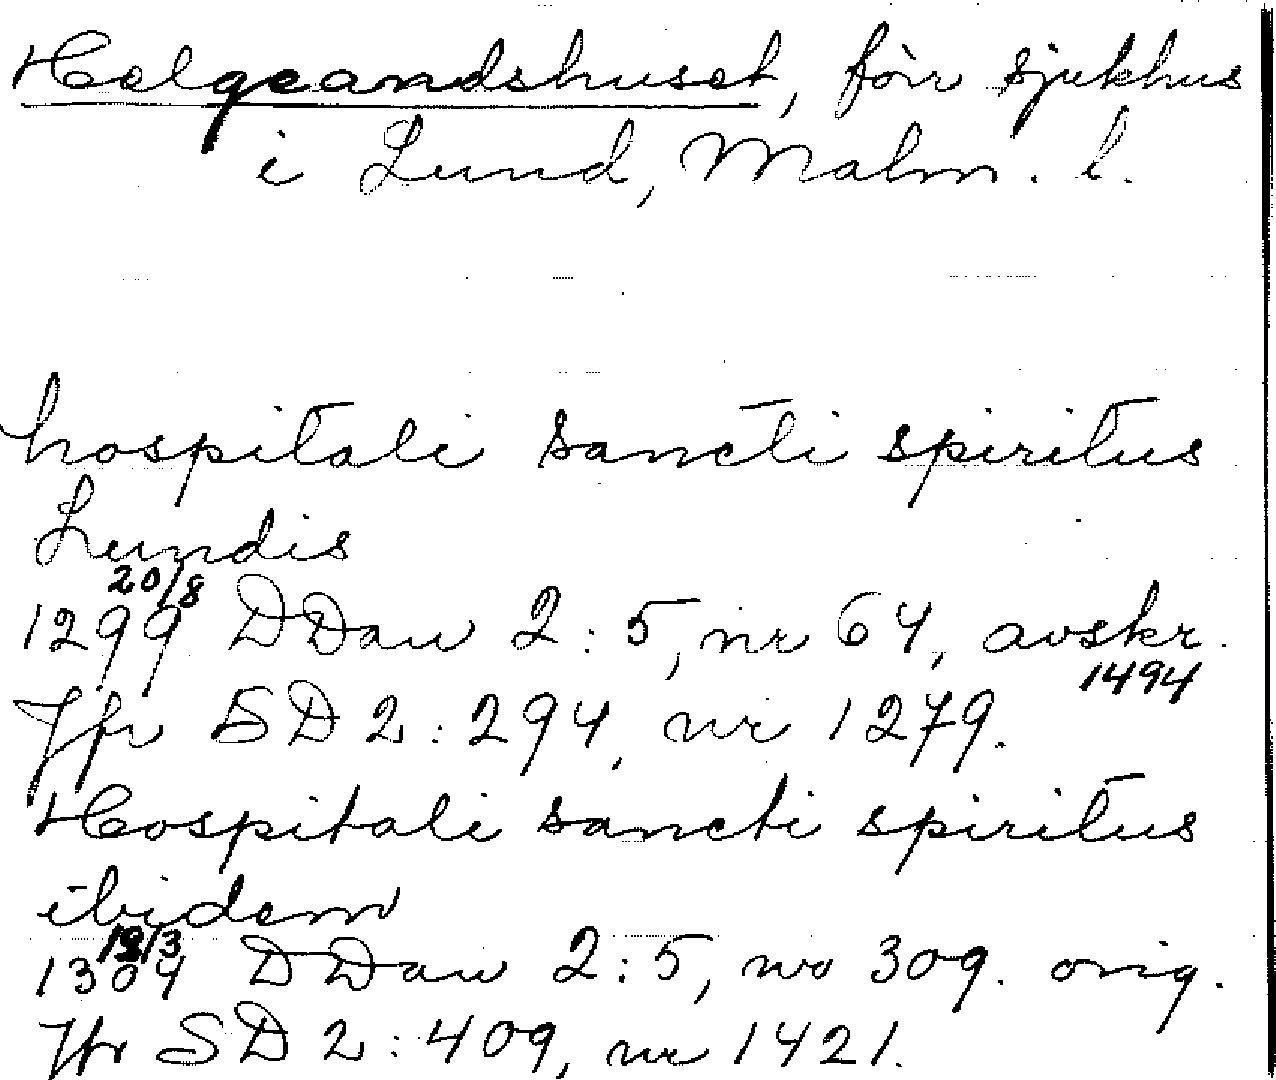 Helgeandshuset, förr sjukhus
i Lund, Malm. l.
hospitali sancti spiritus
Lundis
20/8
1299 DDan 2:5, nr 64, avskr.
1494
Jfr SD 2:294, nr 1279.
Hospitali sancti spiritus
ibidem
1304 DDan 2:5, no 309. orig.
Jfr SD 2:409, nr 1421.